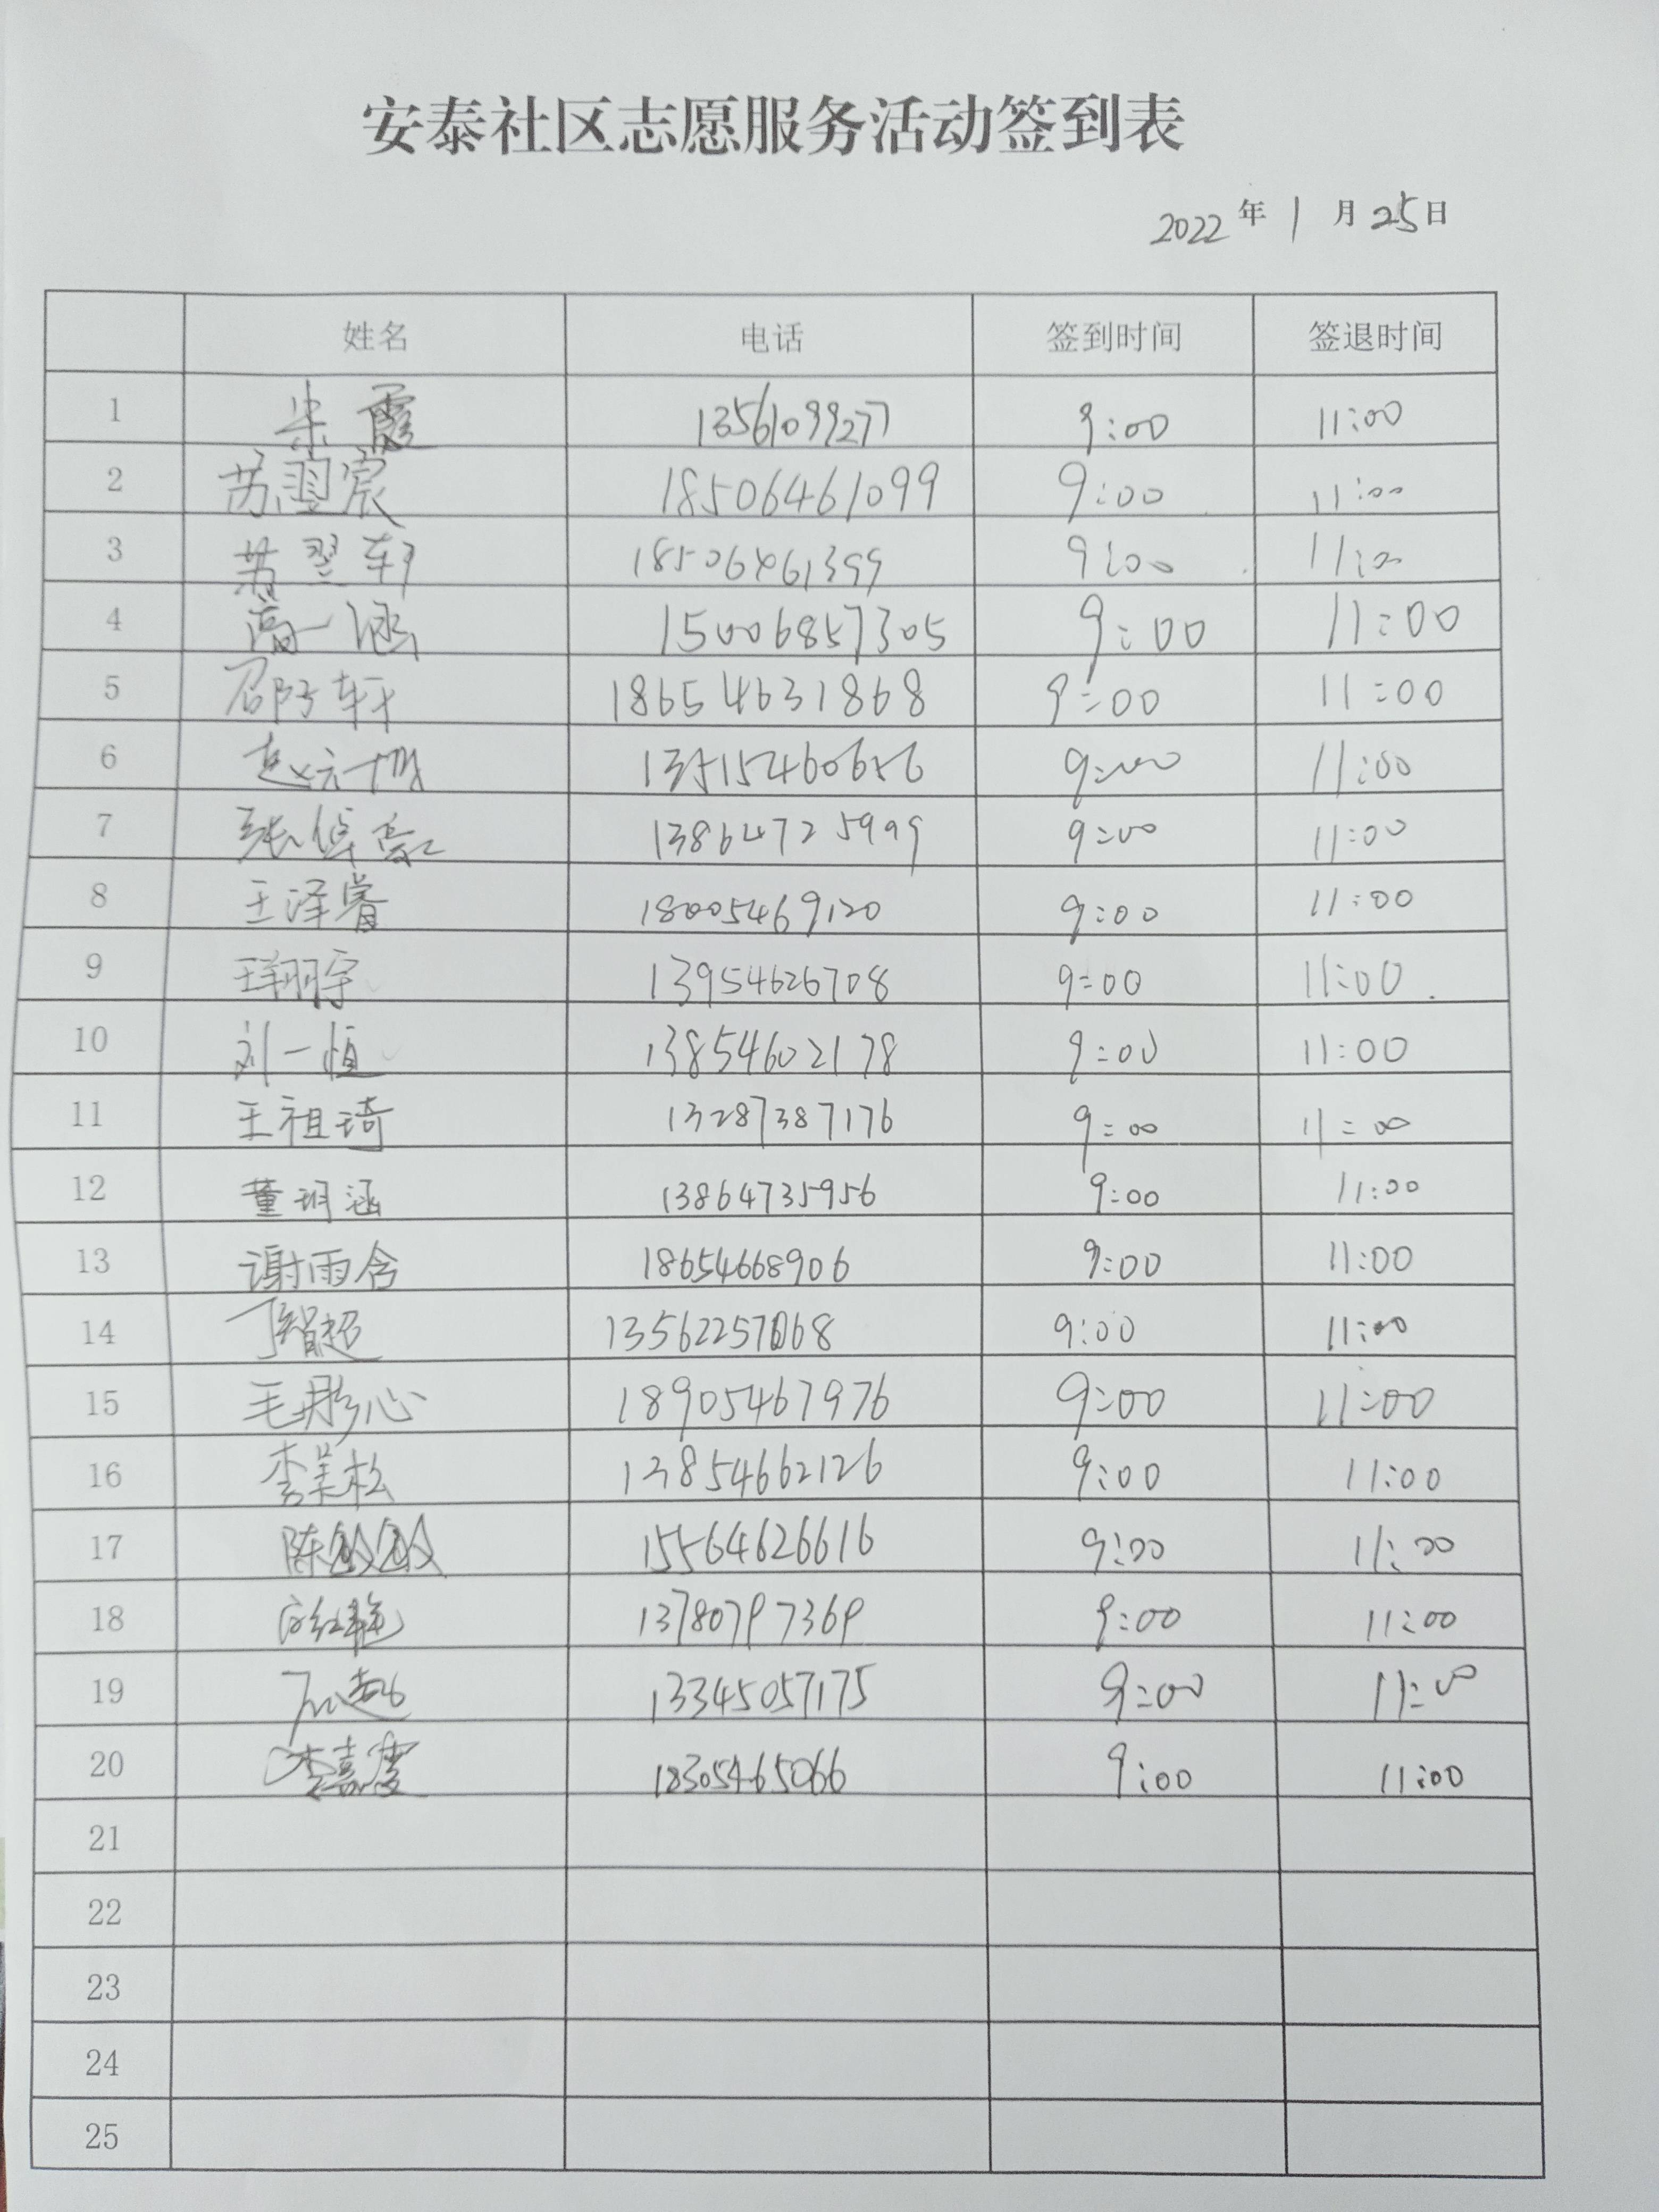 安泰社区志愿服务活动签到表
2022年1月25日
姓名 电话 签到时间 签退时间
1 朱霞 13561099277 9:00 11:00
2 苏翌宸 18506461099 9:00 11:00
3 苏翌轩 18506461399 9:00 11:00
4 高一涵 15006857305 9:00 11:00
5 轩 18654631868 9:00 11:00
6 赵 9:00 11:00
7 张倬豪 13864725999 9:00 11:00
8 王泽睿 18005469120 9:00 11:00
9 王翔宇 13954626708 9:00 11:00
10 刘一恒 13854602178 9:00 11:00
11 王祖琦 13287387176 9:00 11:00
12 董玥涵 13864735956 9:00 11:00
13 谢雨含 18654668906 9:00 11:00
14 丁智超 9:00 11:00
15 毛彤心 18905467976 9:00 11:00
16 李美松 13854662126 9:00 11:00
17 陈 15564626616 9:00 11:00
18 13780797369 9:00 11:00
19 13345057175 9:00 11:00
20 李嘉 18305465066 9:00 11:00
21
22
23
24
25